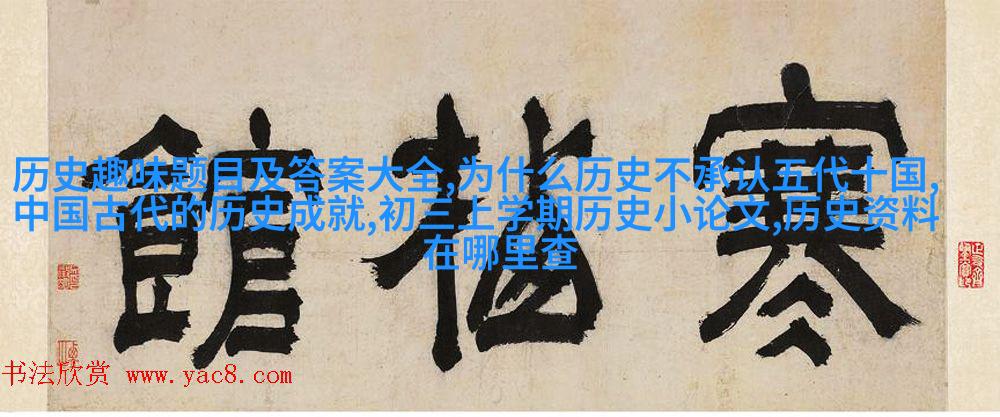 寒梅館
历史趣味题目及答案大全,为什么历史不承认五代十国,
中国古代的历史成就,初三上学期历史小论文,历史资料
在哪里查
书法欣赏 www.yac8.com